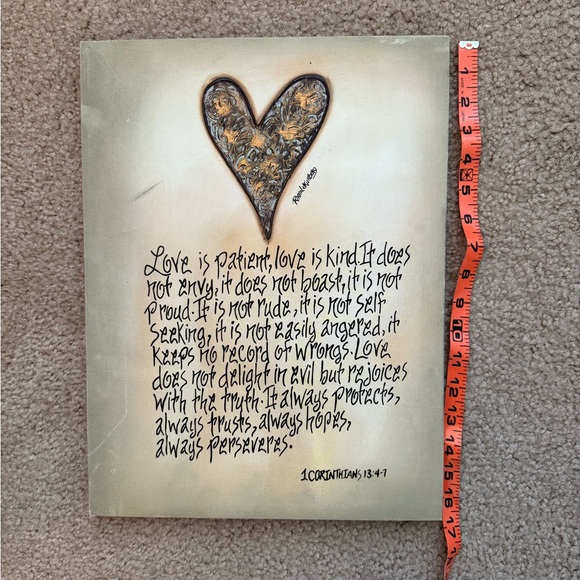 Love is patient, love is kind. It does
not envy, it does not boast, it is not
proud. It is not rude, it is not self
seeking, it is not easily angered, it
keeps no record of wrongs. Love
does not delight in evil but rejoices
with the truth. It always protects,
always trusts, always hopes,
always perseveres.
1 CORINTHIANS 13:4-7
1
2
3
4
5
6
7
8
9
10
11
12
13
14
15
16
17